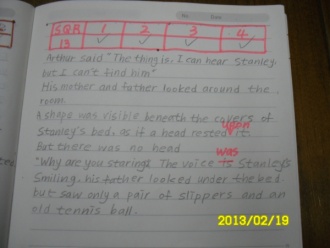 No. Date
SQR 1 2 3 4
13 ✓ ✓ ✓ ✓
Arthur said "The thing is, I can hear Stanley
but I can't find him"
His mother and father looked around the
room.
A shape was visible beneath the covers of
upon
Stanley's bed, as if a head rested it.
But there was no head
was
"Why are you staring? The voice is Stanley's
Smiling, his father looked under the bed
but saw only a pair of slippers and an
old tennis ball.
2013/02/19